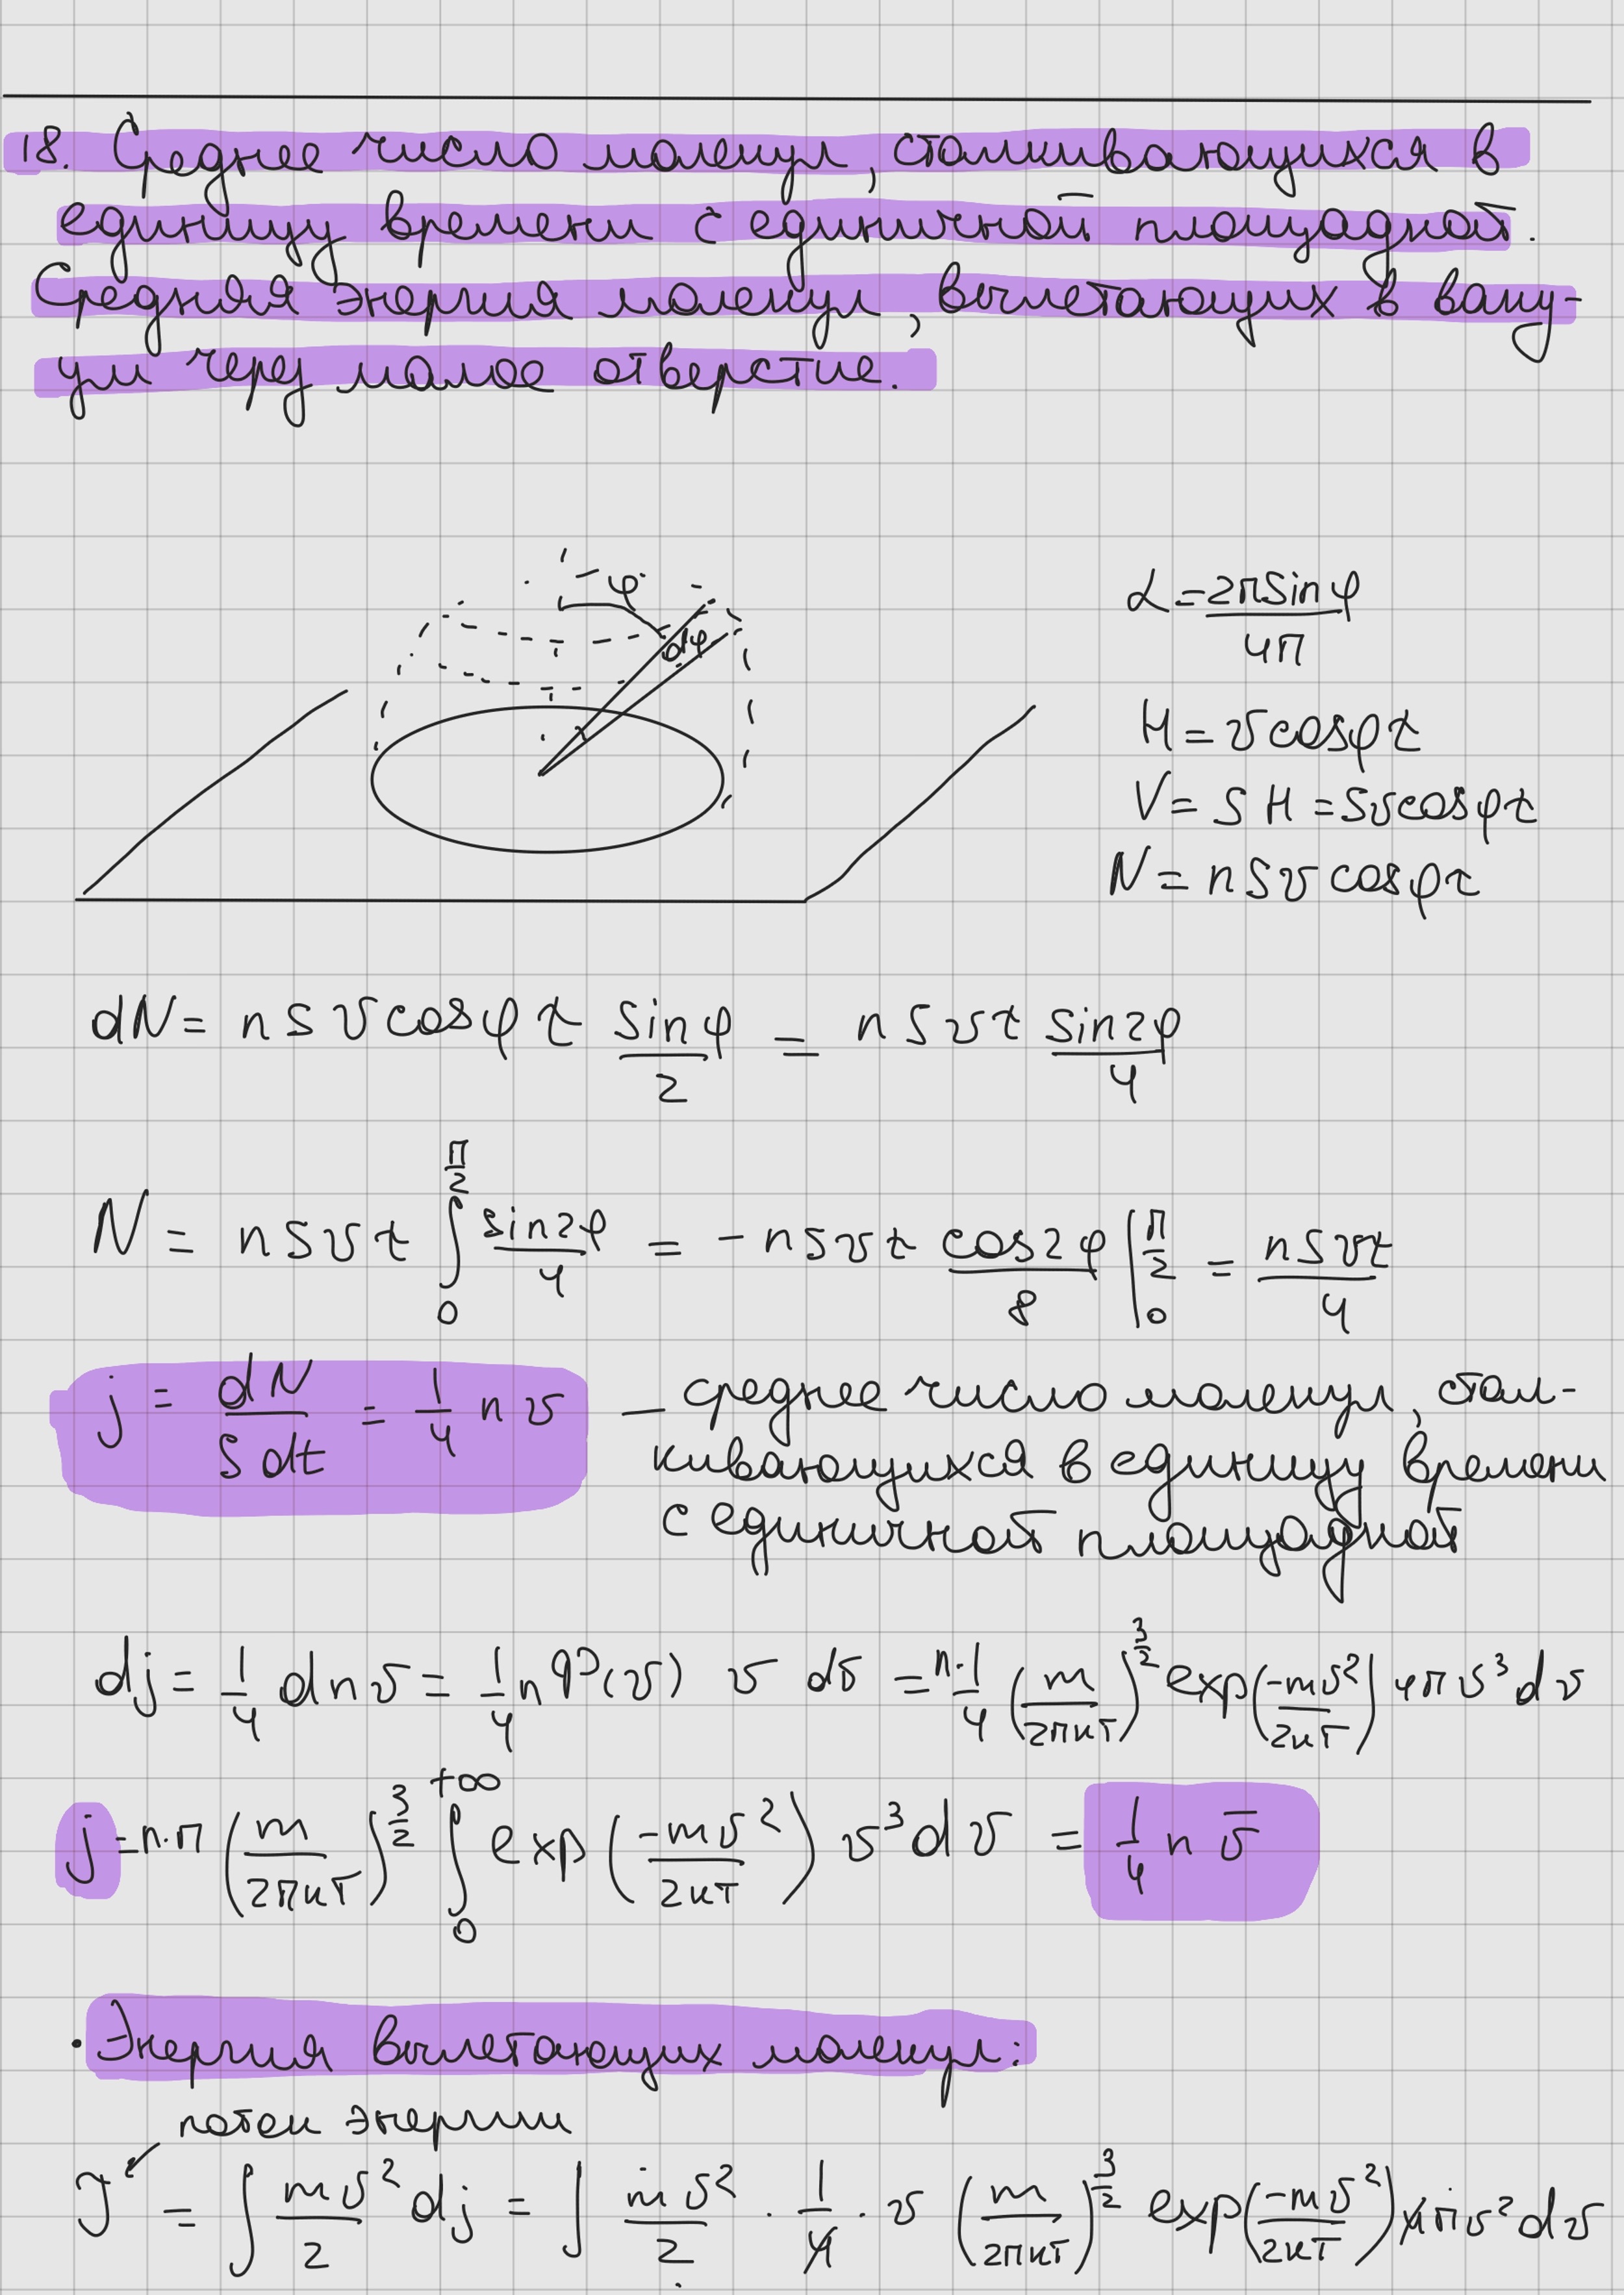 18. Среднее число молекул, сталкивающихся в
единицу времени с единичной площадкой.
Средняя энергия молекул, вылетающих в ваку-
ум через малое отверстие.
φ
dφ
α = 2π sinφ / 4π
H = v cosφ t
V = S H = S v cosφ t
N = n S v cosφ t
dN = n S v cosφ t sinφ / 2 = n S v t sin2φ / 4
N = n S v t ∫₀^(π/2) sin2φ / 4 = - n S v t cos2φ / 8 |₀^(π/2) = n S v t / 4
j = dN / S dt = 1/4 n v — среднее число молекул, стал-
кивающихся в единицу времени
с единичной площадкой
dj = 1/4 dn v = 1/4 n φ(v) v dv = n·1/4 (m / 2πkT)^(3/2) exp(-mv² / 2kT) 4π v³ dv
j = n·π (m / 2πkT)^(3/2) ∫₀^(+∞) exp(-mv² / 2kT) v³ dv = 1/4 n v̄
· Энергия вылетающих молекул:
поток энергии
J = ∫ mv²/2 dj = ∫ mv²/2 · 1/4 · v (m / 2πkT)^(3/2) exp(-mv² / 2kT) 4π v² dv